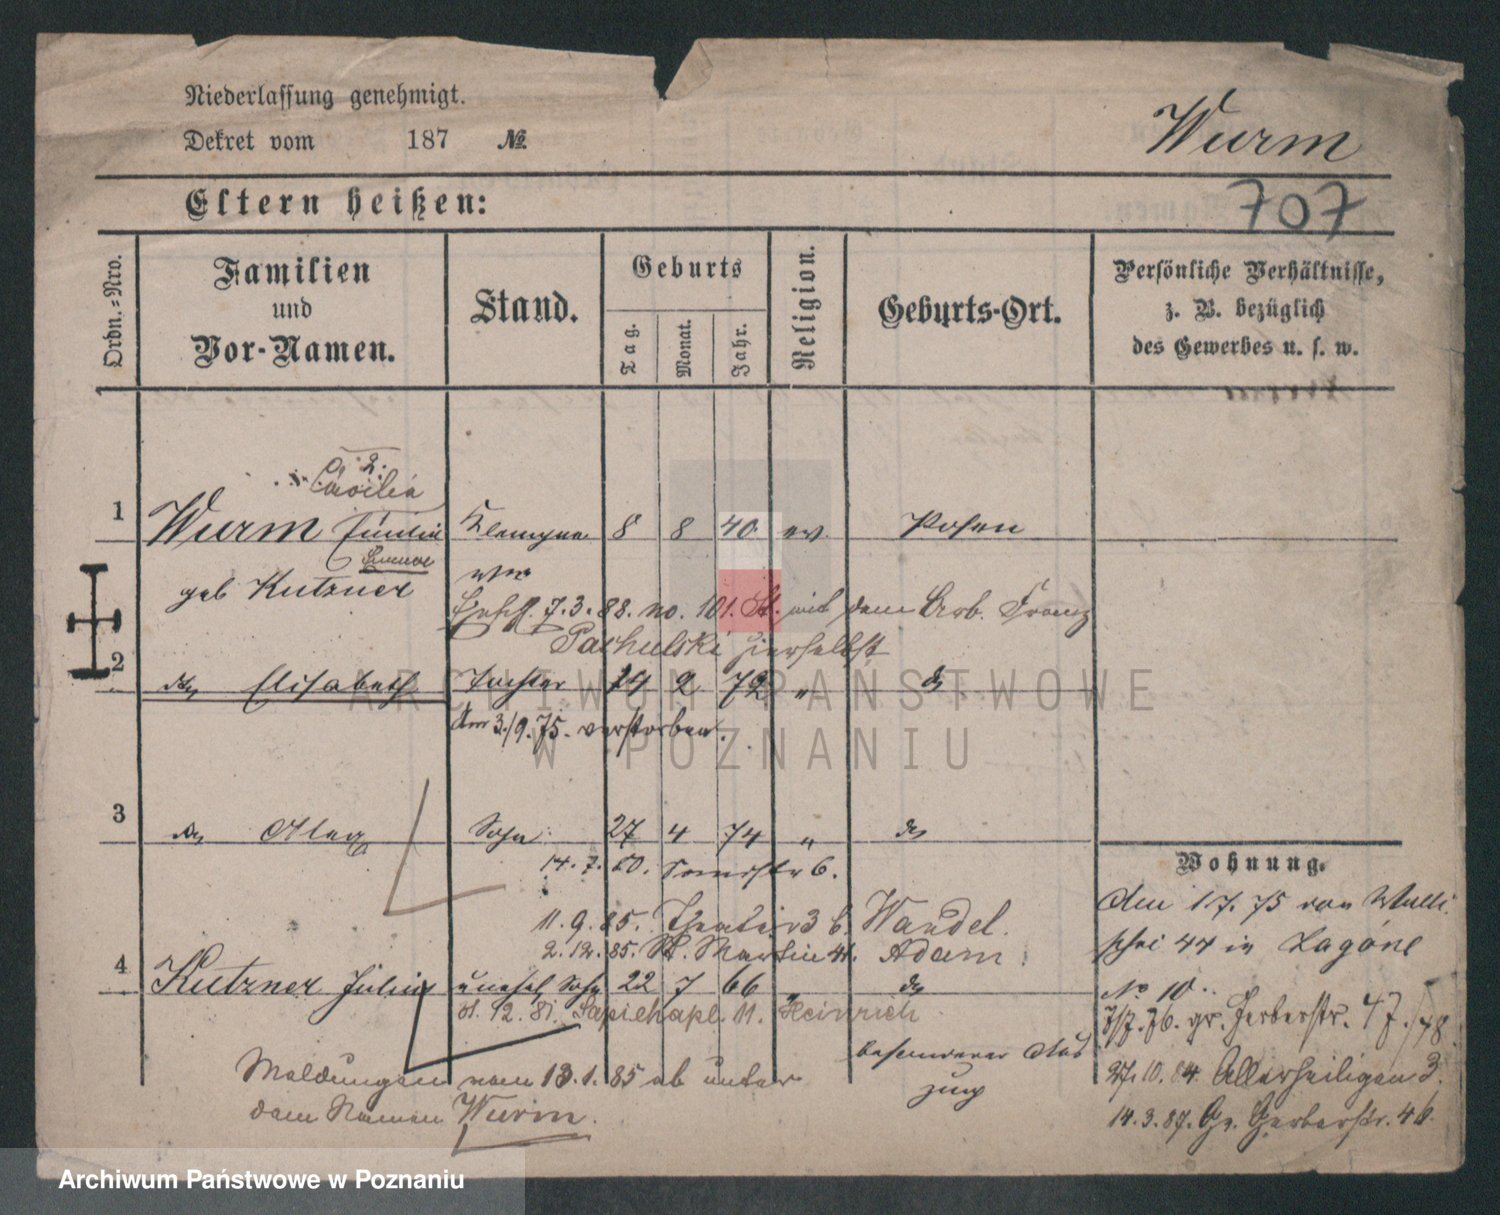 Niederlassung genehmigt.
Dekret vom 187 №
Wurm
Eltern heißen:
707
Ordn.-Nro.
Familien
und
Vor-Namen.
Stand.
Geburts
Tag.
Monat.
Jahr.
Religion.
Geburts-Ort.
Persönliche Verhältnisse,
z. B. bezüglich
des Gewerbes u. s. w.
Cäcilie
1 Wurm 8 8 40 ev. Posen
geb Kutzner wwe
7.3.88. no. 101. St. mit dem Arb. Franz
Pachulski hierselbst
2 do Elisabeth Tochter 24 2 72 " do
Am 3./9.75. verstorben.
3 do Alex Sohn 27 4 74 " do
Wohnung.
14.7.80. 6.
den 1.7.75 von
11.9.85. 3 b. Wandel.
44 in Lagóne
2.12.85. St. Martin 41. Adam.
4 Kutzner Julius unehl Sohn 22 7 66 " do
No 10.
12.81. Sapiehapl. 11. Heinrich
3/7.76. gr. Gerberstr. 47./48.
besonderer Aus
zug
Meldungen vom 13.1.85 ab unter
27.10.84. Allerheiligen 3.
dem Namen Wurm.
14.3.87. Gr. Gerberstr. 46.
ARCHIWUM PAŃSTWOWE
W POZNANIU
Archiwum Państwowe w Poznaniu